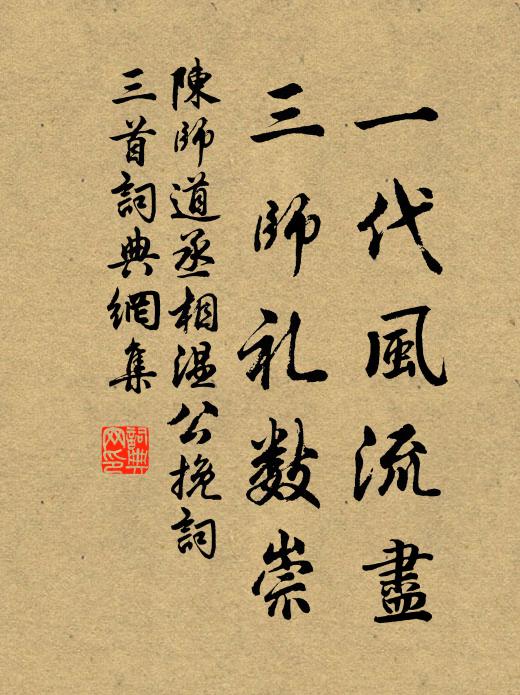 一代風流盡
三師礼数崇
陳師道丞相温公挽詞
三首詞典網集
詞典網印